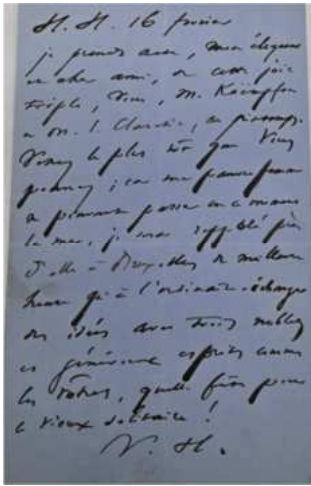 H. H. 16 février
je prends acte, mon éloquent
et cher ami, de cette joie
triple, vous, M. Kaëmpfen
et M. J. Claretie, au printemps.
Venez le plus tôt que vous
pourrez ; car ma pauvre femme
ne pouvant passer en ce moment
la mer, je serai rappelé près
d'elle à Bruxelles de meilleure
heure qu'à l'ordinaire. échanger
des idées avec trois nobles
et généreux esprits comme
les vôtres, quelle fête pour
le vieux solitaire !
V. H.